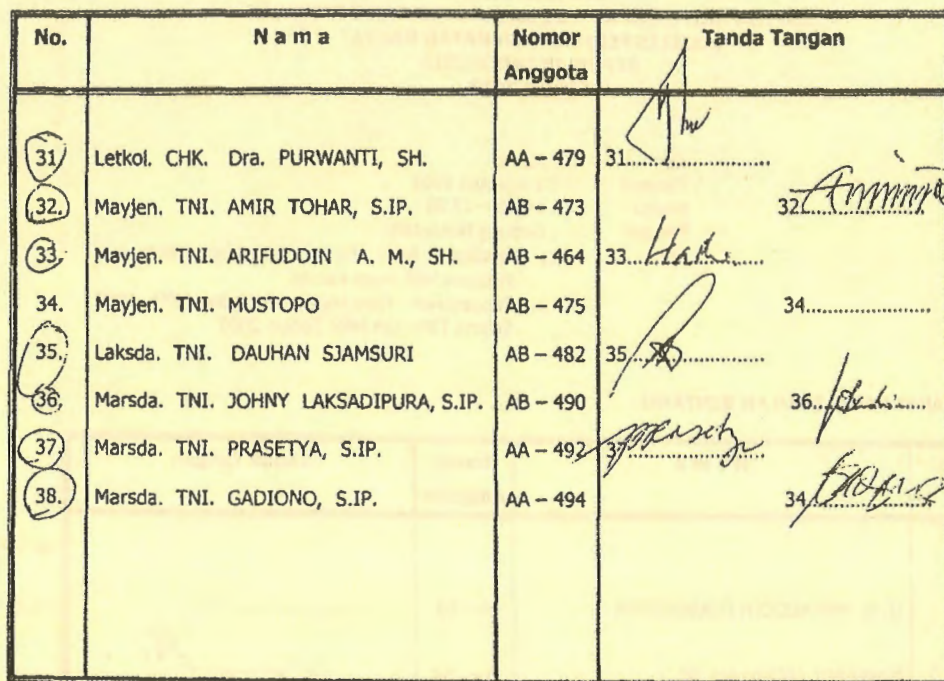 No. N a m a Nomor Anggota Tanda Tangan
31 Letkol. CHK. Dra. PURWANTI, SH. AA – 479 31....................
32. Mayjen. TNI. AMIR TOHAR, S.IP. AB – 473 32....................
33. Mayjen. TNI. ARIFUDDIN A. M., SH. AB – 464 33....................
34. Mayjen. TNI. MUSTOPO AB – 475 34....................
35. Laksda. TNI. DAUHAN SJAMSURI AB – 482 35....................
36. Marsda. TNI. JOHNY LAKSADIPURA, S.IP. AB – 490 36....................
37. Marsda. TNI. PRASETYA, S.IP. AA – 492 37....................
38. Marsda. TNI. GADIONO, S.IP. AA – 494 34....................